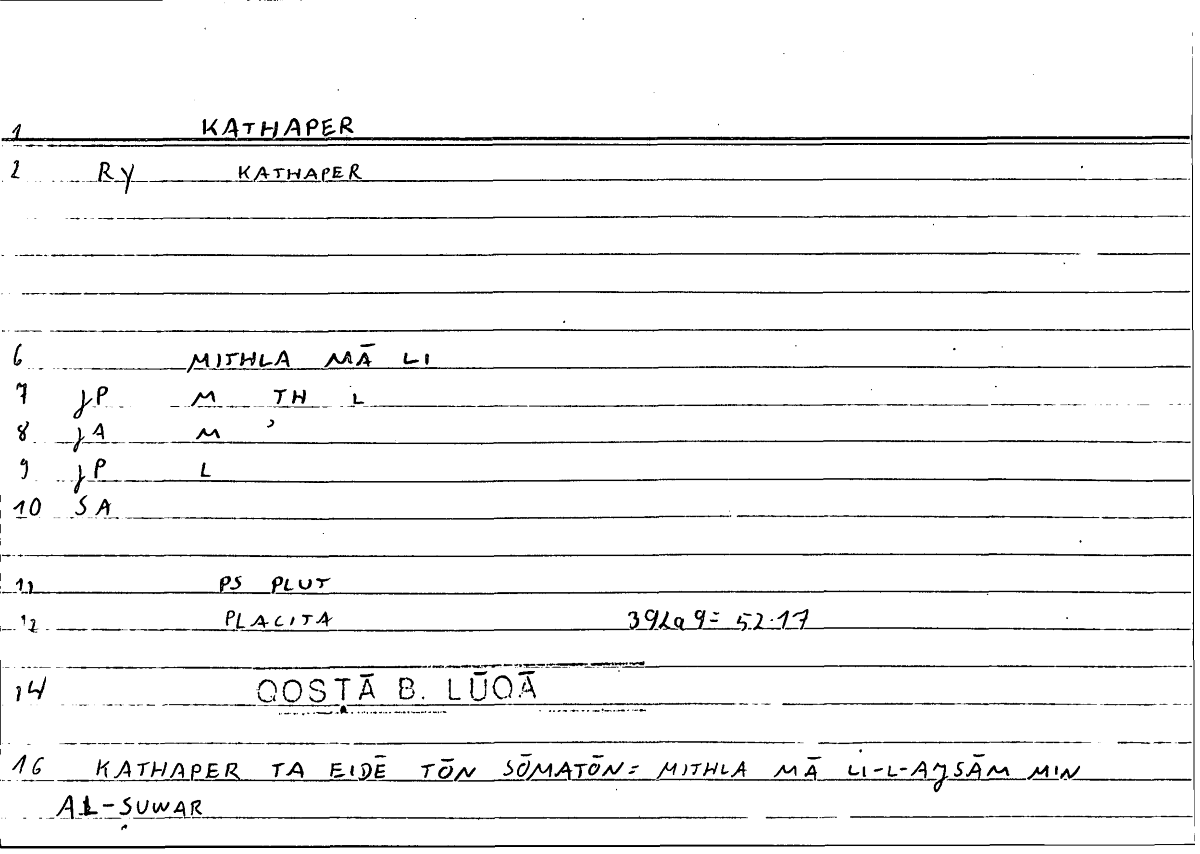 1 KATHAPER
2 RY KATHAPER
6 MITHLA MĀ LI
7 JP M TH L
8 JA M ʾ
9 JP L
10 SA
11 PS PLUT
12 PLACITA 392a9= 52.17
14 QOSṬĀ B. LŪQĀ
16 KATHAPER TA EIDĒ TŌN SŌMATŌN= MITHLA MĀ LI-L-AJSĀM MIN
AL-ṢUWAR